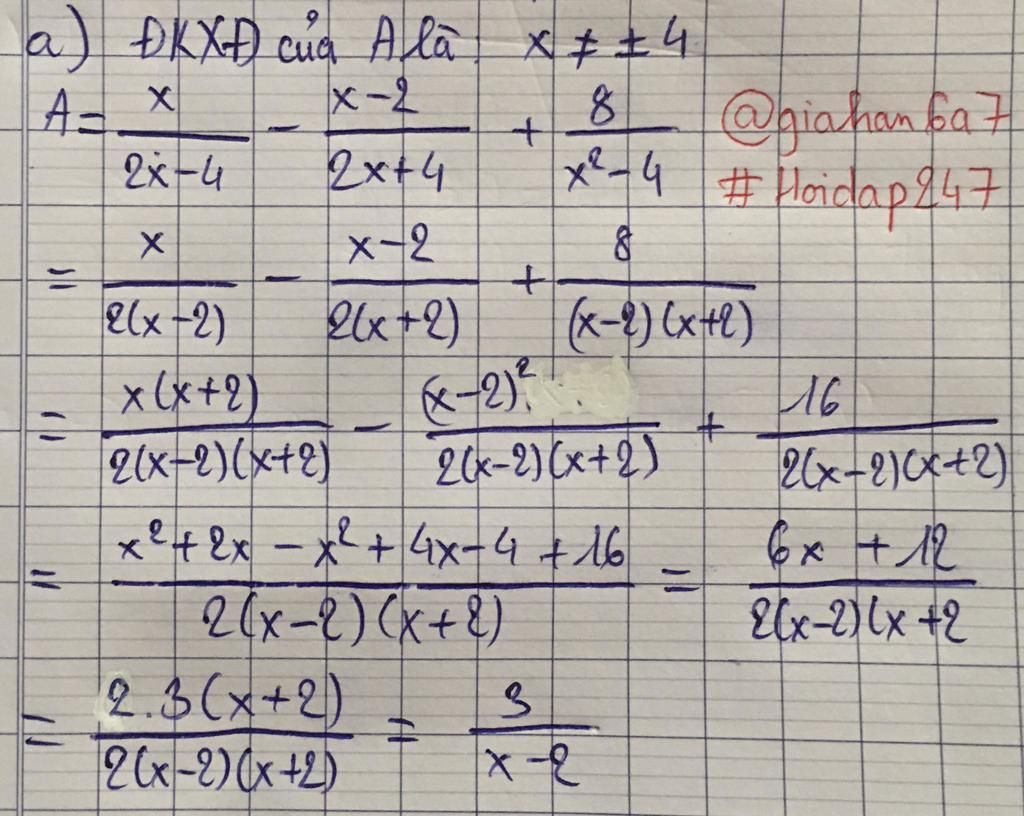 a) ĐKXĐ của A là: x ≠ ± 4
A = x/(2x-4) - (x-2)/(2x+4) + 8/(x²-4)
@giahan6a7
#Hoidap247
= x/(2(x-2)) - (x-2)/(2(x+2)) + 8/((x-2)(x+2))
= x(x+2)/(2(x-2)(x+2)) - (x-2)²/(2(x-2)(x+2)) + 16/(2(x-2)(x+2))
= (x²+2x-x²+4x-4+16)/(2(x-2)(x+2)) = (6x+12)/(2(x-2)(x+2
= 2.3(x+2)/(2(x-2)(x+2)) = 3/(x-2)